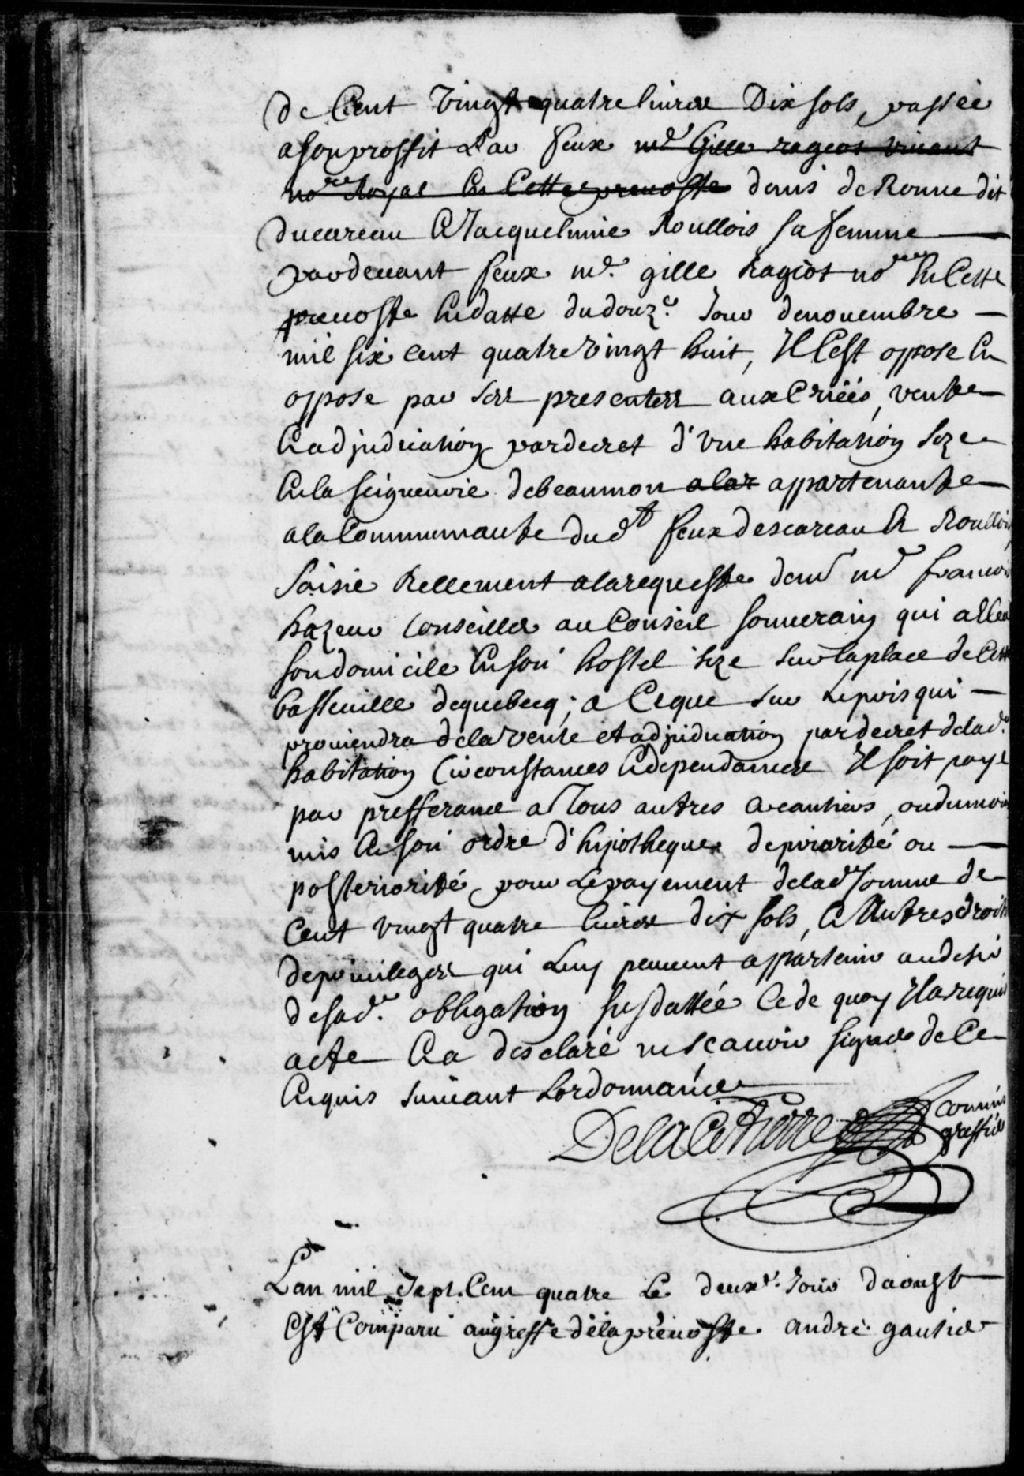 de Cent vingt quatre livres Dix sols, passée
a son proffit Par feux me Gille rageot vivant
nore Royal En Cette prevosté denis de Rome dit
ducareau & Jacquelinne Roullois sa femme
pardevant feux me. gille Rageot nore En Cette
prevosté En datte du douze. Jour de novembre
mil six cent quatre vingt huit, Il C'est opposé En
oppose par Ses presentes aux Criées, vente
& adjudication par decret d'Une habitation Size
En la seigneurie de beaumon a lar appartenante
a la Communauté dud feux descareau & Roullois,
Saisie Réellement a la requeste de me francois
hazeur Conseiller au Conseil souverain qui a Eleu
son domicile En son hostel size sur la place de Cette
basseville de quebecq; a Ce que sur Le prix qui
proviendra de la vente et adjudication par decret de lade.
habitation Circonstances & dependances Il soit payé
par prefferance a Tous autres creantiers, ou du moins
mis En son ordre d'hipotheque de priorité ou
posteriorité, pour Le payement de lad Somme de
Cent vingt quatre livres dix sols, & Autres droits
de privileges qui Luy peuvent appartenir au desir
de sade. obligation susdattée Ce de quoy Il a requis
acte & a desclaré ne scavoir signer de Ce
Enquis suivant Lordonnance
Delacetierre
Commis
greffier
L'an mil Sept. Cent quatre Le deuxe. Jour d'aoust
Est Comparu au greffe de la prevosté andré gautier